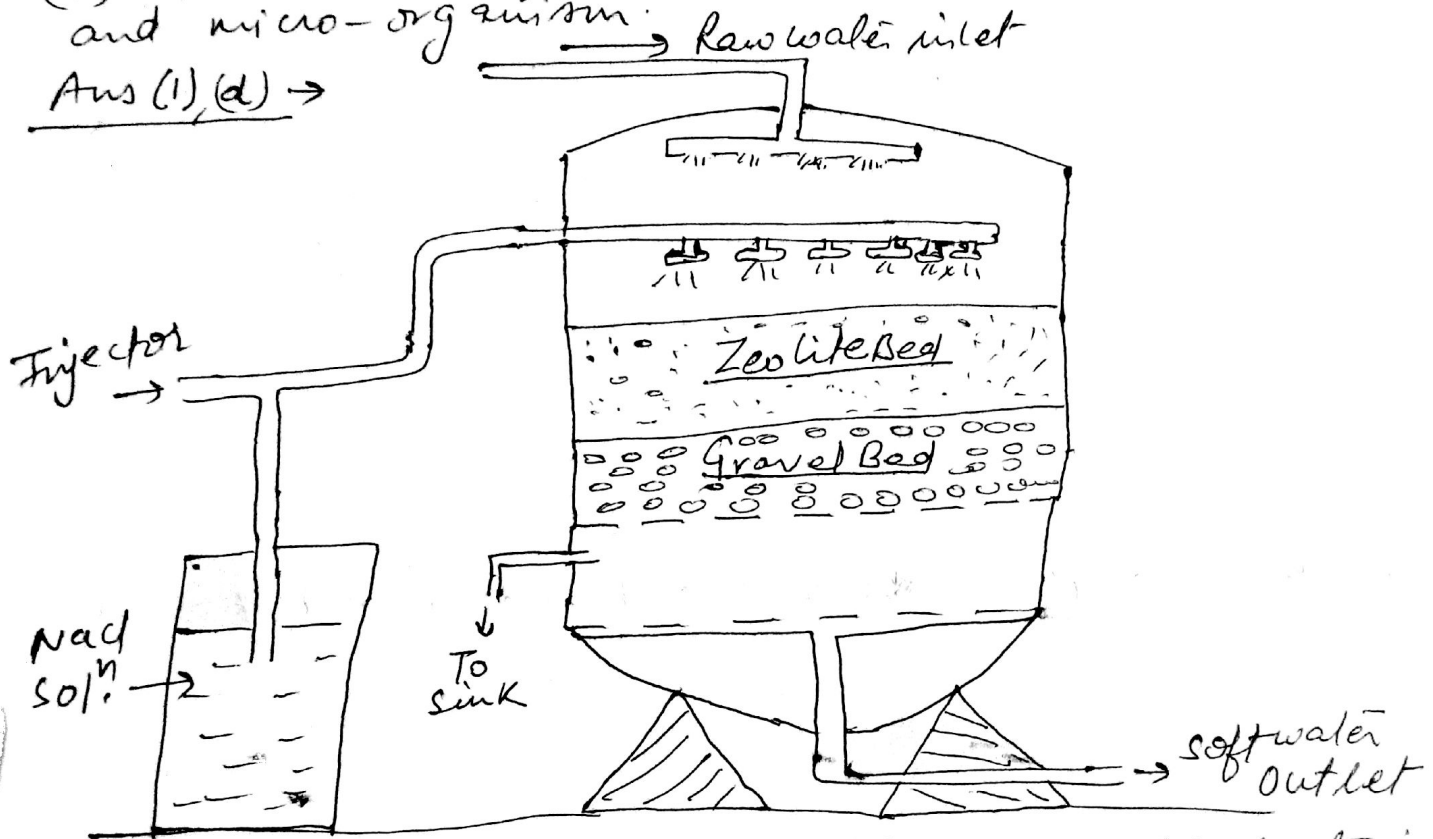 and micro-organism.
→ Raw water inlet
Ans (1), (d) →
Injector
→
Zeolite Bed
Gravel Bed
NaCl
solⁿ. →
To
sink
→ soft water
outlet